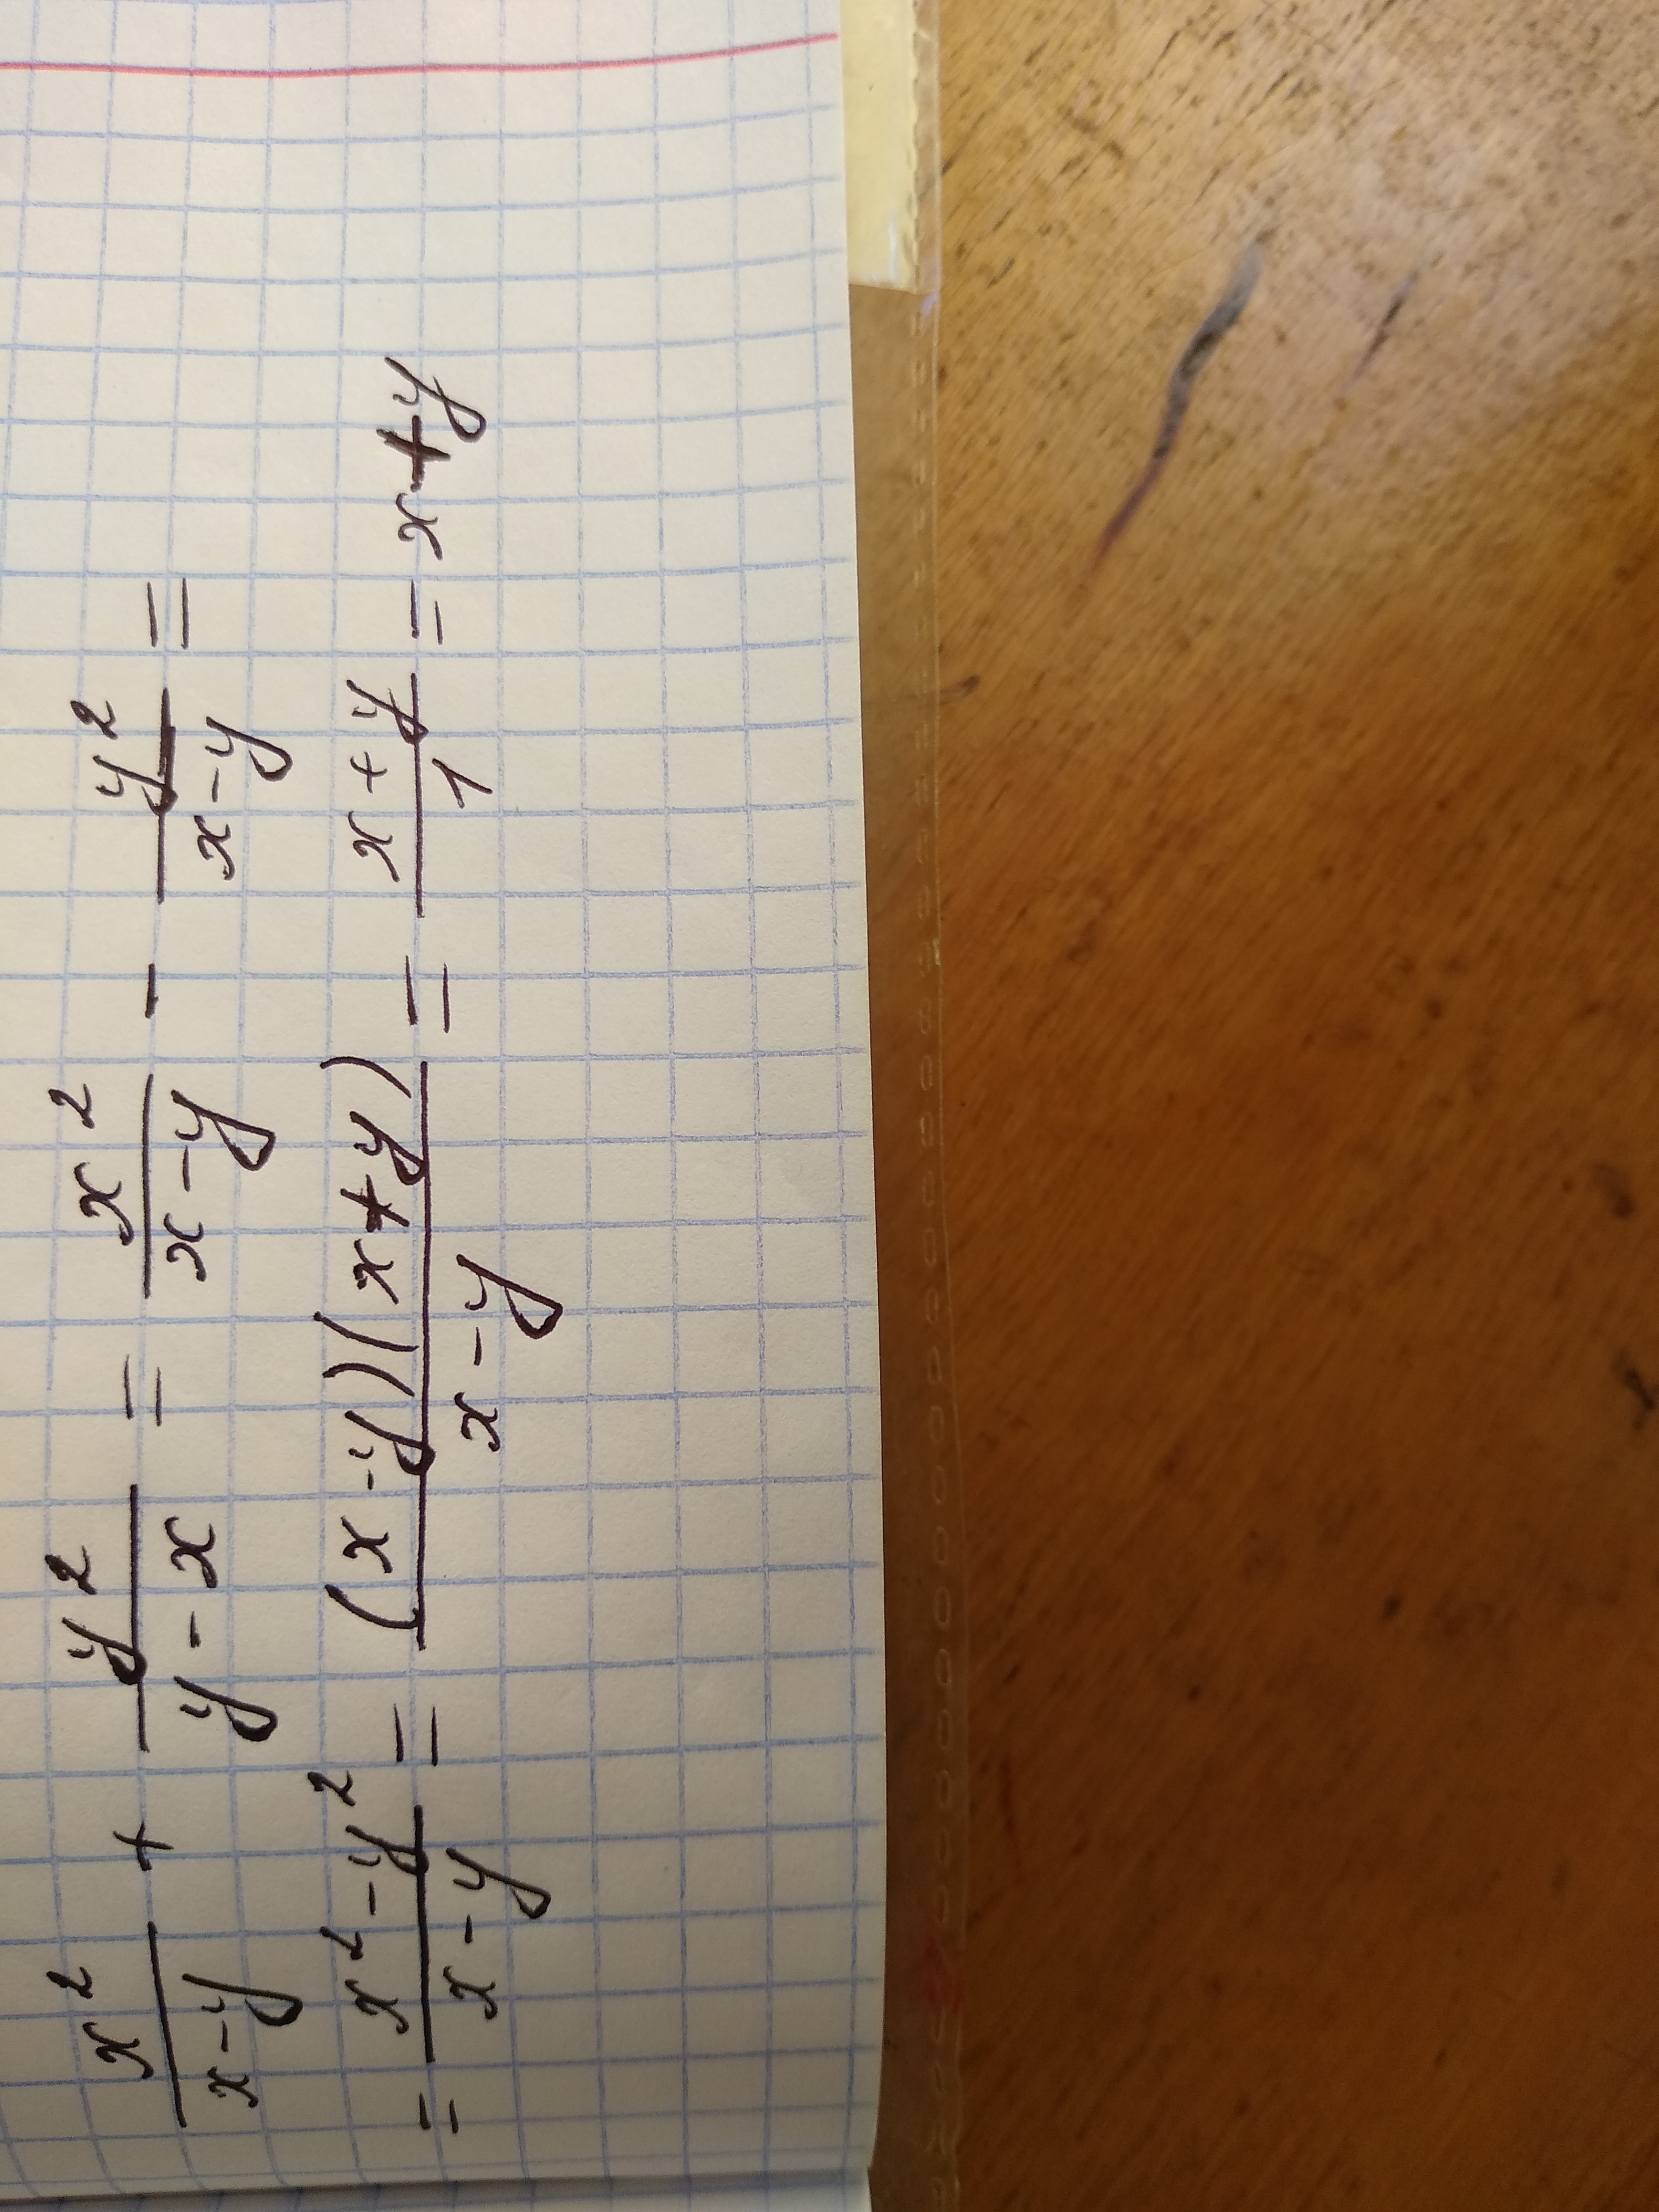 x²/(x-y) + y²/(y-x) = x²/(x-y) - y²/(x-y) =
= (x²-y²)/(x-y) = (x-y)(x+y)/(x-y) = (x+y)/1 = x+y